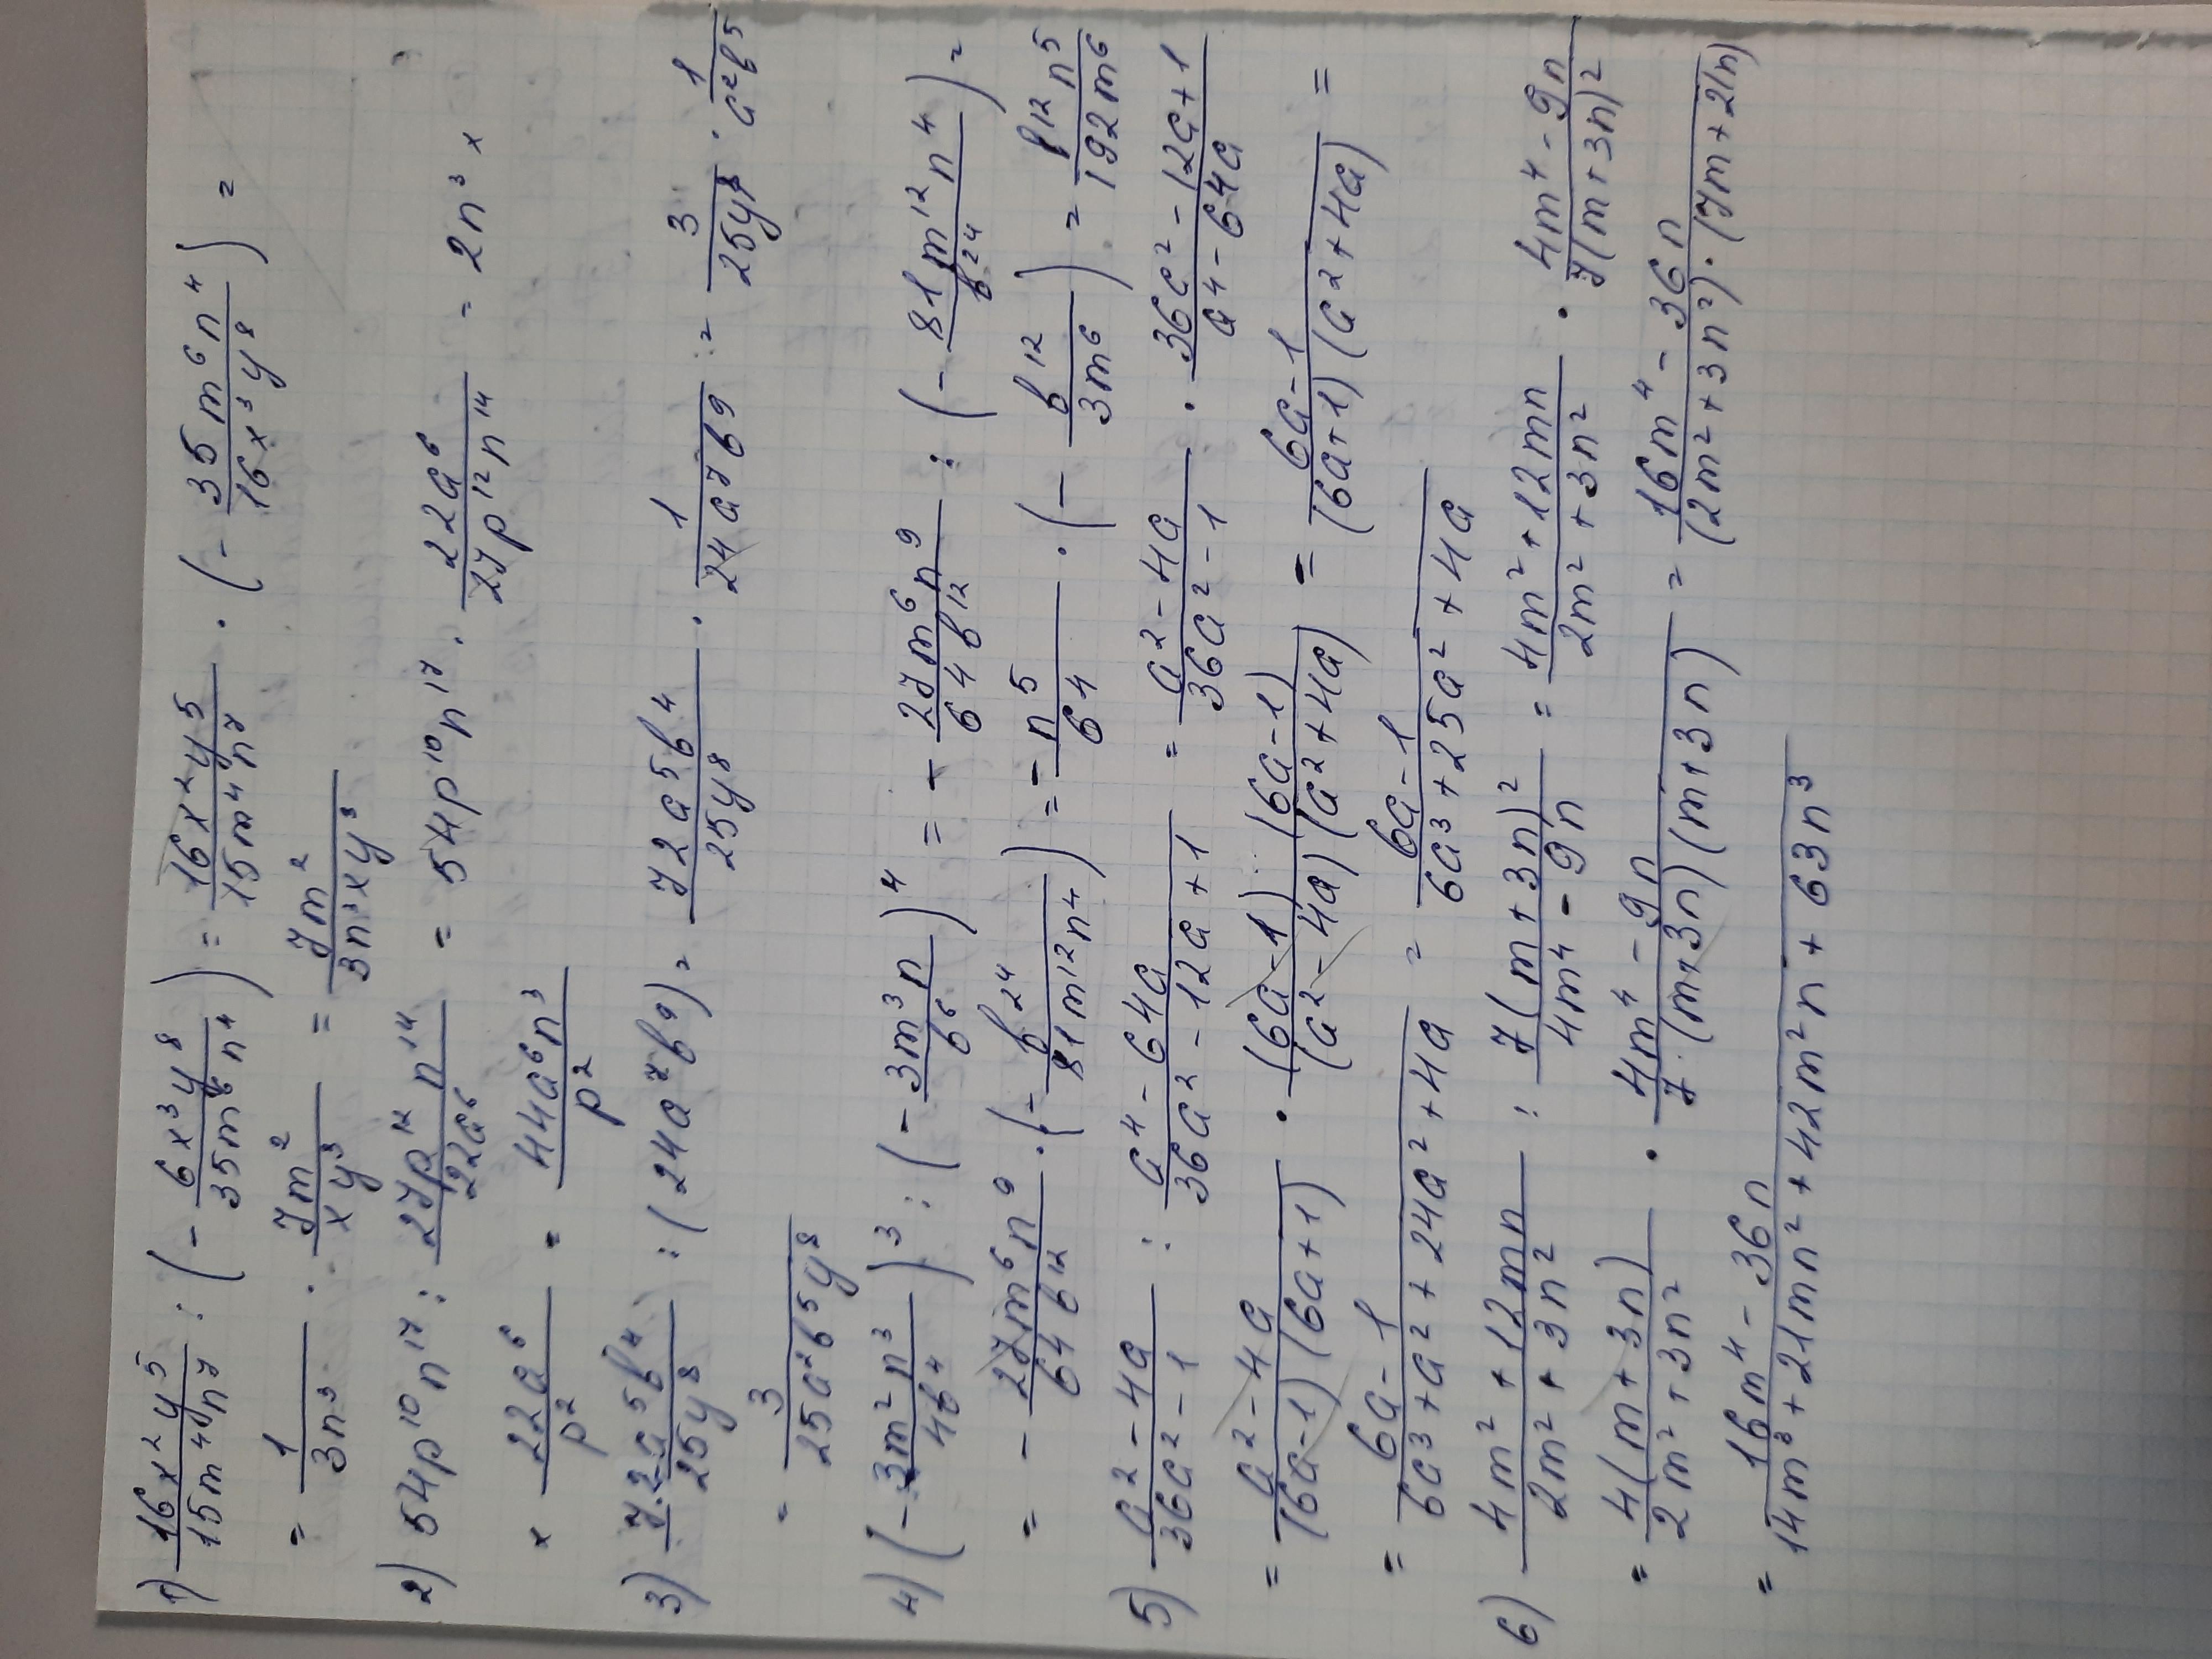 1) \frac{16x^2y^5}{15m^4n^7} : (-\frac{6x^3y^8}{35m^6n^4}) = \frac{16x^2y^5}{15m^4n^7} · (-\frac{35m^6n^4}{16x^3y^8}) =
= \frac{1}{3n^3} · \frac{7m^2}{xy^3} = \frac{7m^2}{3n^3xy^3}
2) 54p^{10}n^{17} : \frac{27p^{12}n^{14}}{22a^6} = 54p^{10}n^{17} · \frac{22a^6}{27p^{12}n^{14}} = 2n^3 ×
× \frac{22a^6}{p^2} = \frac{44a^6n^3}{p^2}
3) \frac{72a^5b^4}{25y^8} : (24a^7b^9) = \frac{72a^5b^4}{25y^8} · \frac{1}{24a^7b^9} = \frac{3}{25y^8} · \frac{1}{a^2b^5}
= \frac{3}{25a^2b^5y^8}
4) (-\frac{3m^2n^3}{4b^4})^3 : (-\frac{3m^3n}{b^6})^4 = -\frac{27m^6n^9}{64b^{12}} : (-\frac{81m^{12}n^4}{b^{24}}) =
= -\frac{27m^6n^9}{64b^{12}} · (-\frac{b^{24}}{81m^{12}n^4}) = -\frac{n^5}{64} · (-\frac{b^{12}}{3m^6}) = \frac{b^{12}n^5}{192m^6}
5) \frac{a^2-4a}{36a^2-1} : \frac{a^4-64a}{36a^2-12a+1} = \frac{a^2-4a}{36a^2-1} · \frac{36a^2-12a+1}{a^4-64a}
= \frac{a^2-4a}{(6a-1)(6a+1)} · \frac{(6a-1)·(6a-1)}{(a^2-4a)(a^2+4a)} = \frac{6a-1}{(6a+1)(a^2+4a)} =
= \frac{6a-1}{6a^3+a^2+24a^2+4a} = \frac{6a-1}{6a^3+25a^2+4a}
6) \frac{4m^2+12mn}{2m^2+3n^2} : \frac{7(m+3n)^2}{4m^4-9n} = \frac{4m^2+12mn}{2m^2+3n^2} · \frac{4m^4-9n}{7(m+3n)^2}
= \frac{4(m+3n)}{2m^2+3n^2} · \frac{4m^4-9n}{7·(m+3n)(m+3n)} = \frac{16m^4-36n}{(2m^2+3n^2)·(7m+21n)}
= \frac{16m^4-36n}{14m^3+21mn^2+42m^2n+63n^3}